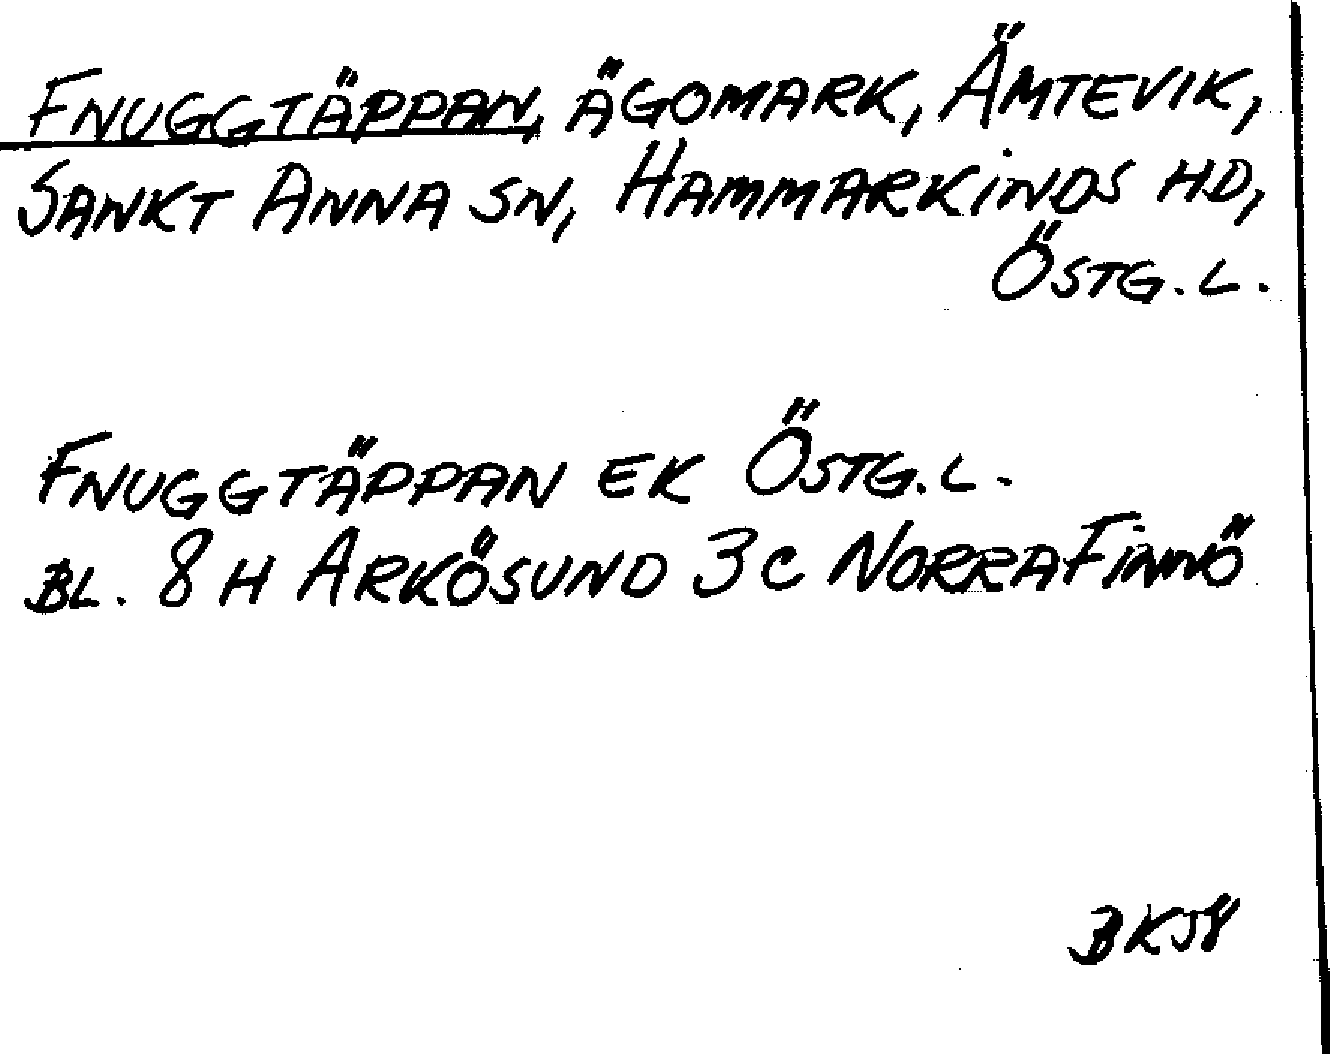 FNUGGTÄPPAN, ÄGOMARK, ÄMTEVIK,
SANKT ANNA SN, HAMMARKINDS HD,
ÖSTG. L.
FNUGGTÄPPAN EK ÖSTG. L.
BL. 8 H ARKÖSUND 3 C NORRA FINNÖ